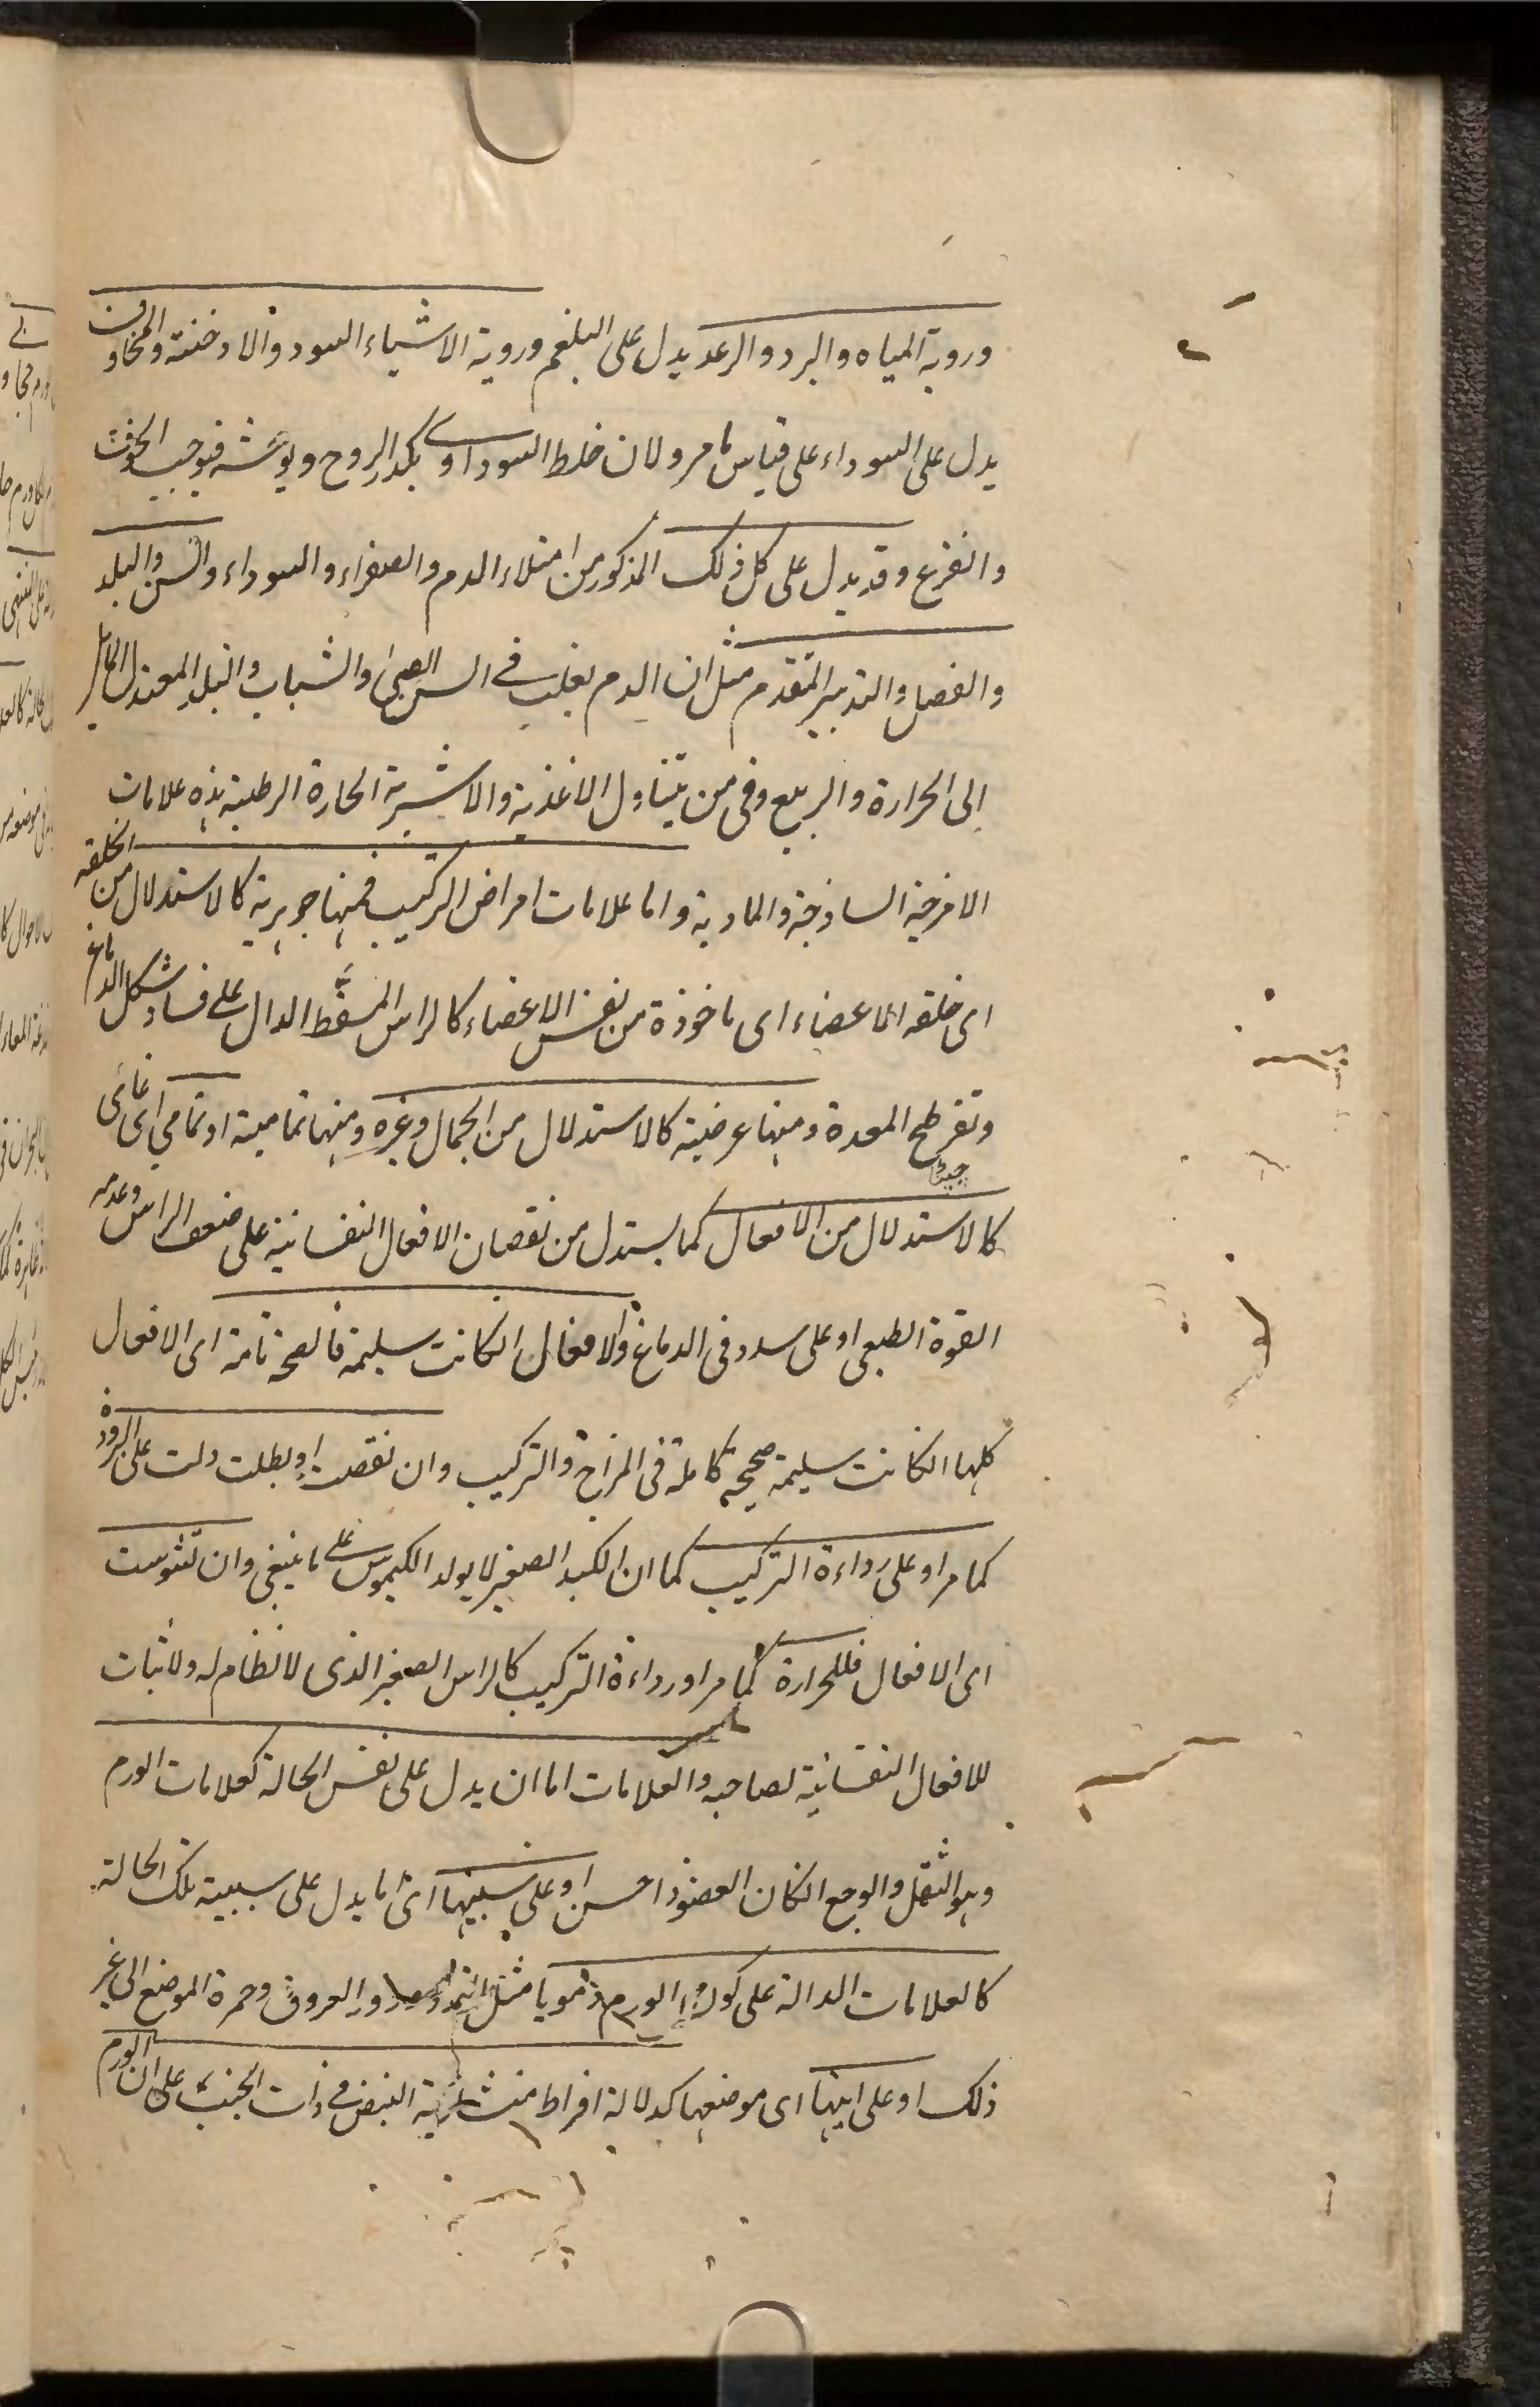 وروية المياه والبرد والرعد يدل على البلغم وروية الاشياء السود والادخنة والمخاوف
يدل على السوداء على قياس ما مر ولان خلط السوداوى يكدر الروح ويوحشه فيوجب الخوف
والفزع وقد يدل على كل ذلك المذكور من امتلاء الدم والصفراء والسوداء والسن والبلد
والفصل والتدبير المتقدم مثل ان الدم يغلب فى السن الصبى والشباب والبلد المعتدل المايل
الى الحرارة والربيع وفى من يتناول الاغذية والاشربة الحارة الرطبة هذه علامات
الامزجة الساذجة والمادية واما علامات امراض التركيب فمنها جوهرية كالاستدلال من الخلقة
اى خلقه الاعضاء اى ماخوذة من نفس الاعضاء كالراس المسفط الدال على فساد شكل الدماغ
وتفرطح المعدة ومنها عرضية كالاستدلال من الجمال وغيره ومنها تمامية او تمامي اى غائى
كالاستدلال من الافعال كما يستدل من نقصان الافعال النفسانية على ضعف الراس وعدمه
القوة الطبعى او على سدد فى الدماغ والافعال انكانت سليمة فالصحة تامة اى الافعال
كلها انكانت سليمة صحيحة كاملة فى المزاج والتركيب وان نقصت او بطلت دلت على البرودة
كما مر او على رداءة التركيب كما ان الكبد الصغير لا يولد الكيموس على ما ينبغى وان تشوست
اى الافعال فللحرارة كما مر او رداءة التركيب كالراس الصغير الذى لا نظام له ولا ثبات
للافعال النفسانية لصاحبه والعلامات اما ان يدل على نفس الحالة كعلامات الورم
وهو الثقل والوجع انكان العضو ذا حس او على سببها اى ما يدل على سببية تلك الحالة
كالعلامات الدالة على كون الورم دمويا مثل التمدد ودرور العروق وحمرة الموضع الى غير
ذلك او على اينها اى موضعها كدلالة افراط منشارية النبض فى ذات الجنب على ان الورم